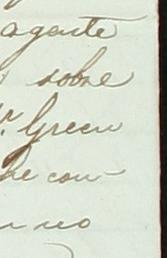 agente
sobre
r. Green
he con-
n no